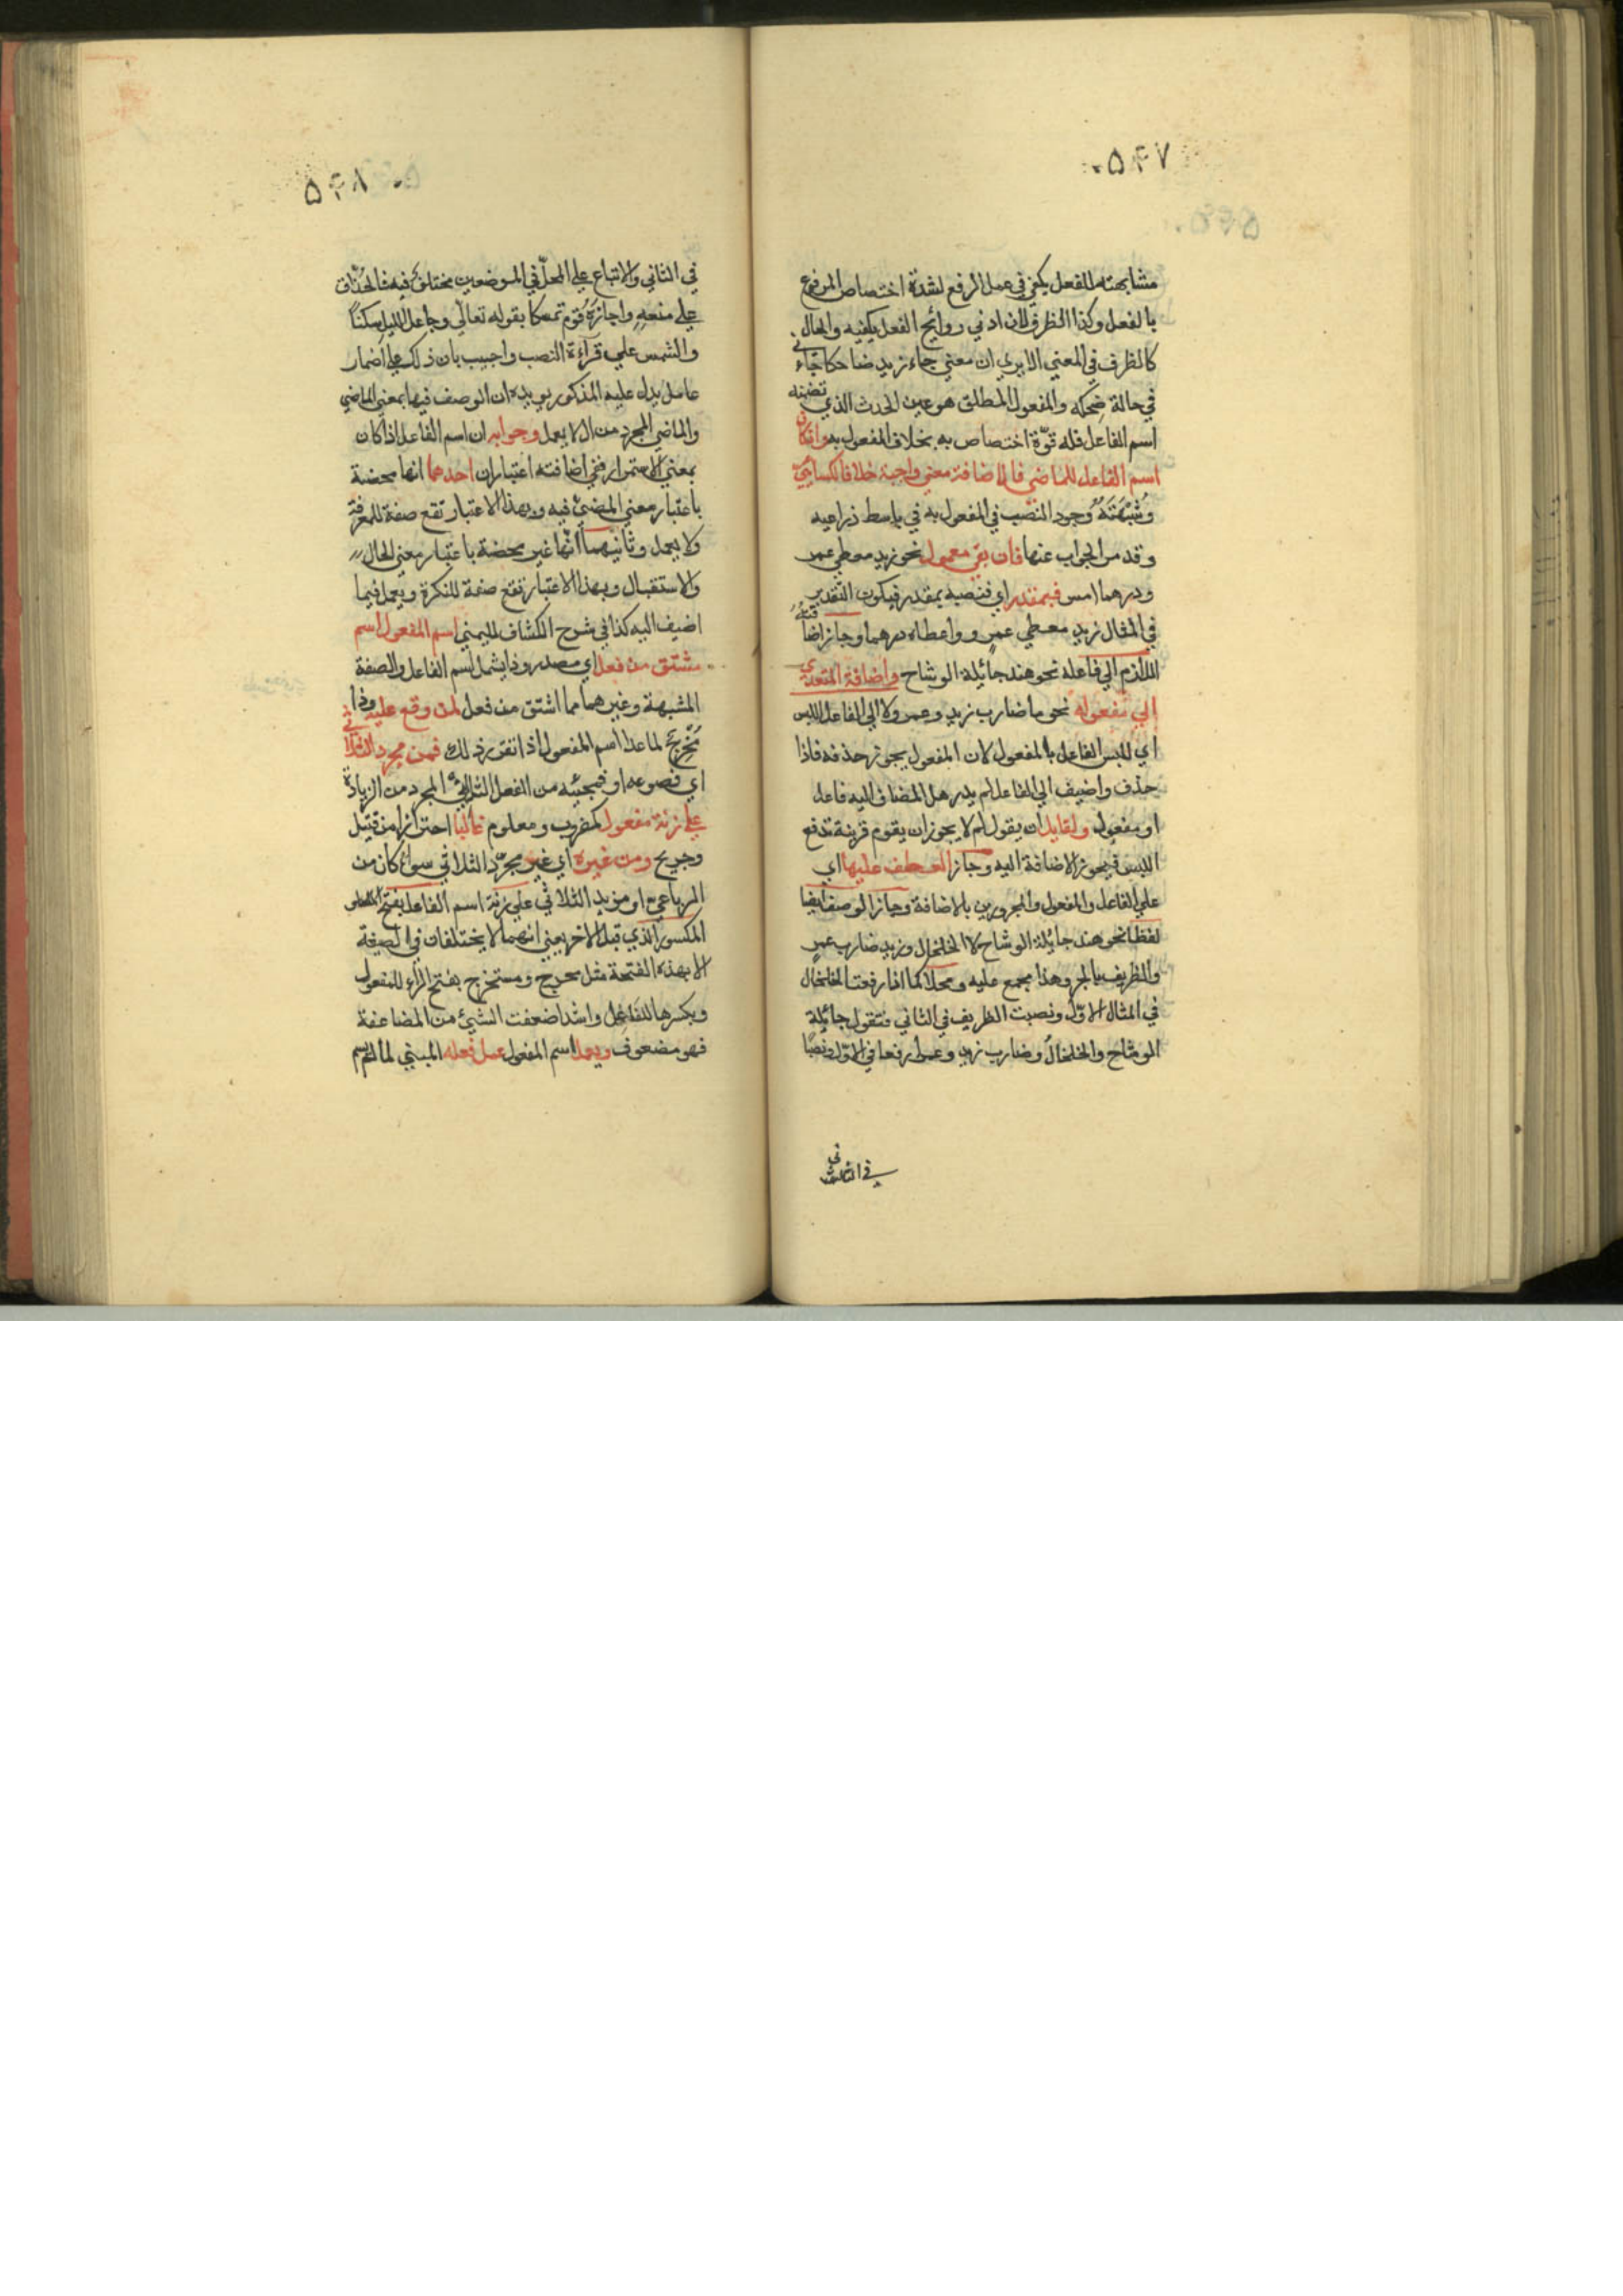 ۵۴۷
مشابهته للفعل يكفي في عمل الرفع لشدة اختصاص المرفوع
بالفعل وكذا الظرف لان ادني روايح الفعل يكفيه والحال
كالظرف في المعني الا يري ان معني جاء زيد ضاحكا جاء
في حالة ضحكه والمفعول المطلق هو عين الحدث الذي تضمنه
اسم الفاعل فله قوّة اختصاص به بخلاف المفعول به وان كان
اسم الفاعل للماضي فالاضافة معني واجبة خلافا لكسائي
وشبهته وجود النصب في المفعول به في باسط ذراعيه
وقد مر الجواب عنها فان بقي معمول نحو زيد معطي عمر
ودرهما امس فبمقدر اي فنصبه بمقدر فيكون التقدير
في المثال زيد معطي عمرو واعطاه درهما وجاز اضافة
اللازم الي فاعله نحو هند جائلة الوشاح واضافة المتعدي
الي مفعوله نحو ما ضارب زيد وعمر ولا الي الفاعل للبس
اي للبس الفاعل بالمفعول لان المفعول يجوز حذفه فاذا
حذف واضيف الي الفاعل لم يدر هل المضاف اليه فاعل
او مفعول ولقايل ان يقول لم لا يجوز ان يقوم قرينة تدفع
اللبس فيجوز الاضافة اليه وجاز العطف عليها اي
علي الفاعل والمفعول والمجرورين بالاضافة وجاز الوصف ايضا
لفظا نحو هند جايلة الوشاح لا الخلخال وزيد ضارب عمرٍ
والظريف بالجر وهذا مجمع عليه ومحلا كما اذا رفعت الخلخال
في المثال الاوّل ونصبت الظريف في الثاني فتقول جائلة
الوشاح والخلخالُ وضارب زيد وعمرا رفعا في الاوّل ونصبا
في الثاني
۵۴۸
في الثاني والاتباع علي المحلّ في الموضعين مختلف فيه فالحُذّاق
علي منعه واجازهُ قوم تمسكا بقوله تعالي وجاعل الليل سكناً
والشمس علي قراءة النصب واجيب بان ذلك علي اضمار
عامل يدل عليه المذكور يويده ان الوصف فيها بمعني الماضي
والماضي المجرد من ال لا يعمل وجوابه ان اسم الفاعل اذا كان
بمعني الاستمرار ففي اضافته اعتباران احدهما انها محضة
باعتبار معني المضيّ فيه وبهذا الاعتبار تقع صفة للمعرفة
ولا يعمل وثانيهما انّها غير محضة باعتبار معني الحال
والاستقبال وبهذا الاعتبار تقع صفة للنكرة ويعمل فيما
اضيف اليه كذا في شرح الكشاف لليمني اسم المفعول اسم
مشتق من فعل اي مصدر وذا يشمل اسم الفاعل والصفة
المشبهة وغيرهما مما اشتق من فعل لمن وقع عليه وذا
مخرج لما عدا اسم المفعول اذا تقرر ذلك فمن مجرد الثلاثي
اي فصوغه او فمجيئه من الفعل الثلاثي المجرد من الزيادة
علي زنة مفعول كمضروب ومعلوم غالبا احترازا من قتيل
وجريح ومن غيره اي غير مجرّد الثلاثي سواء كان من
الرباعي او مزيد الثلاثي علي زنة اسم الفاعل بفتح
المكسور الذي قبل الاخر يعني انهما لا يختلفان في الصيغة
الا بهذه الفتحة مثل مخرج ومستخرج بفتح الراء للمفعول
وبكسرها للفاعل واشذ اضعفت الشيئ من المضاعفة
فهو مضعوف ويعمل اسم المفعول عمل فعله المبني لما لم يسم